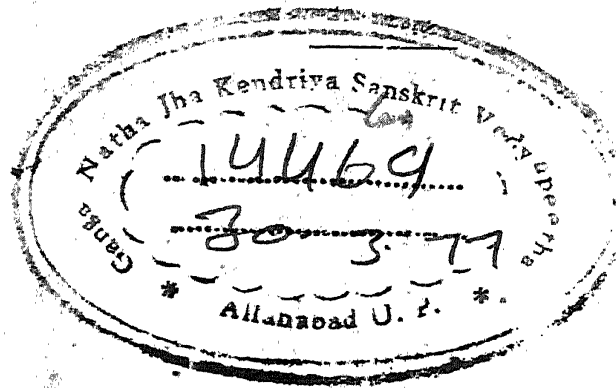 Ganga Natha Jha Kendriya Sanskrit Vidyapeetha
14469
30-3-77
* Allahabad U. P. *